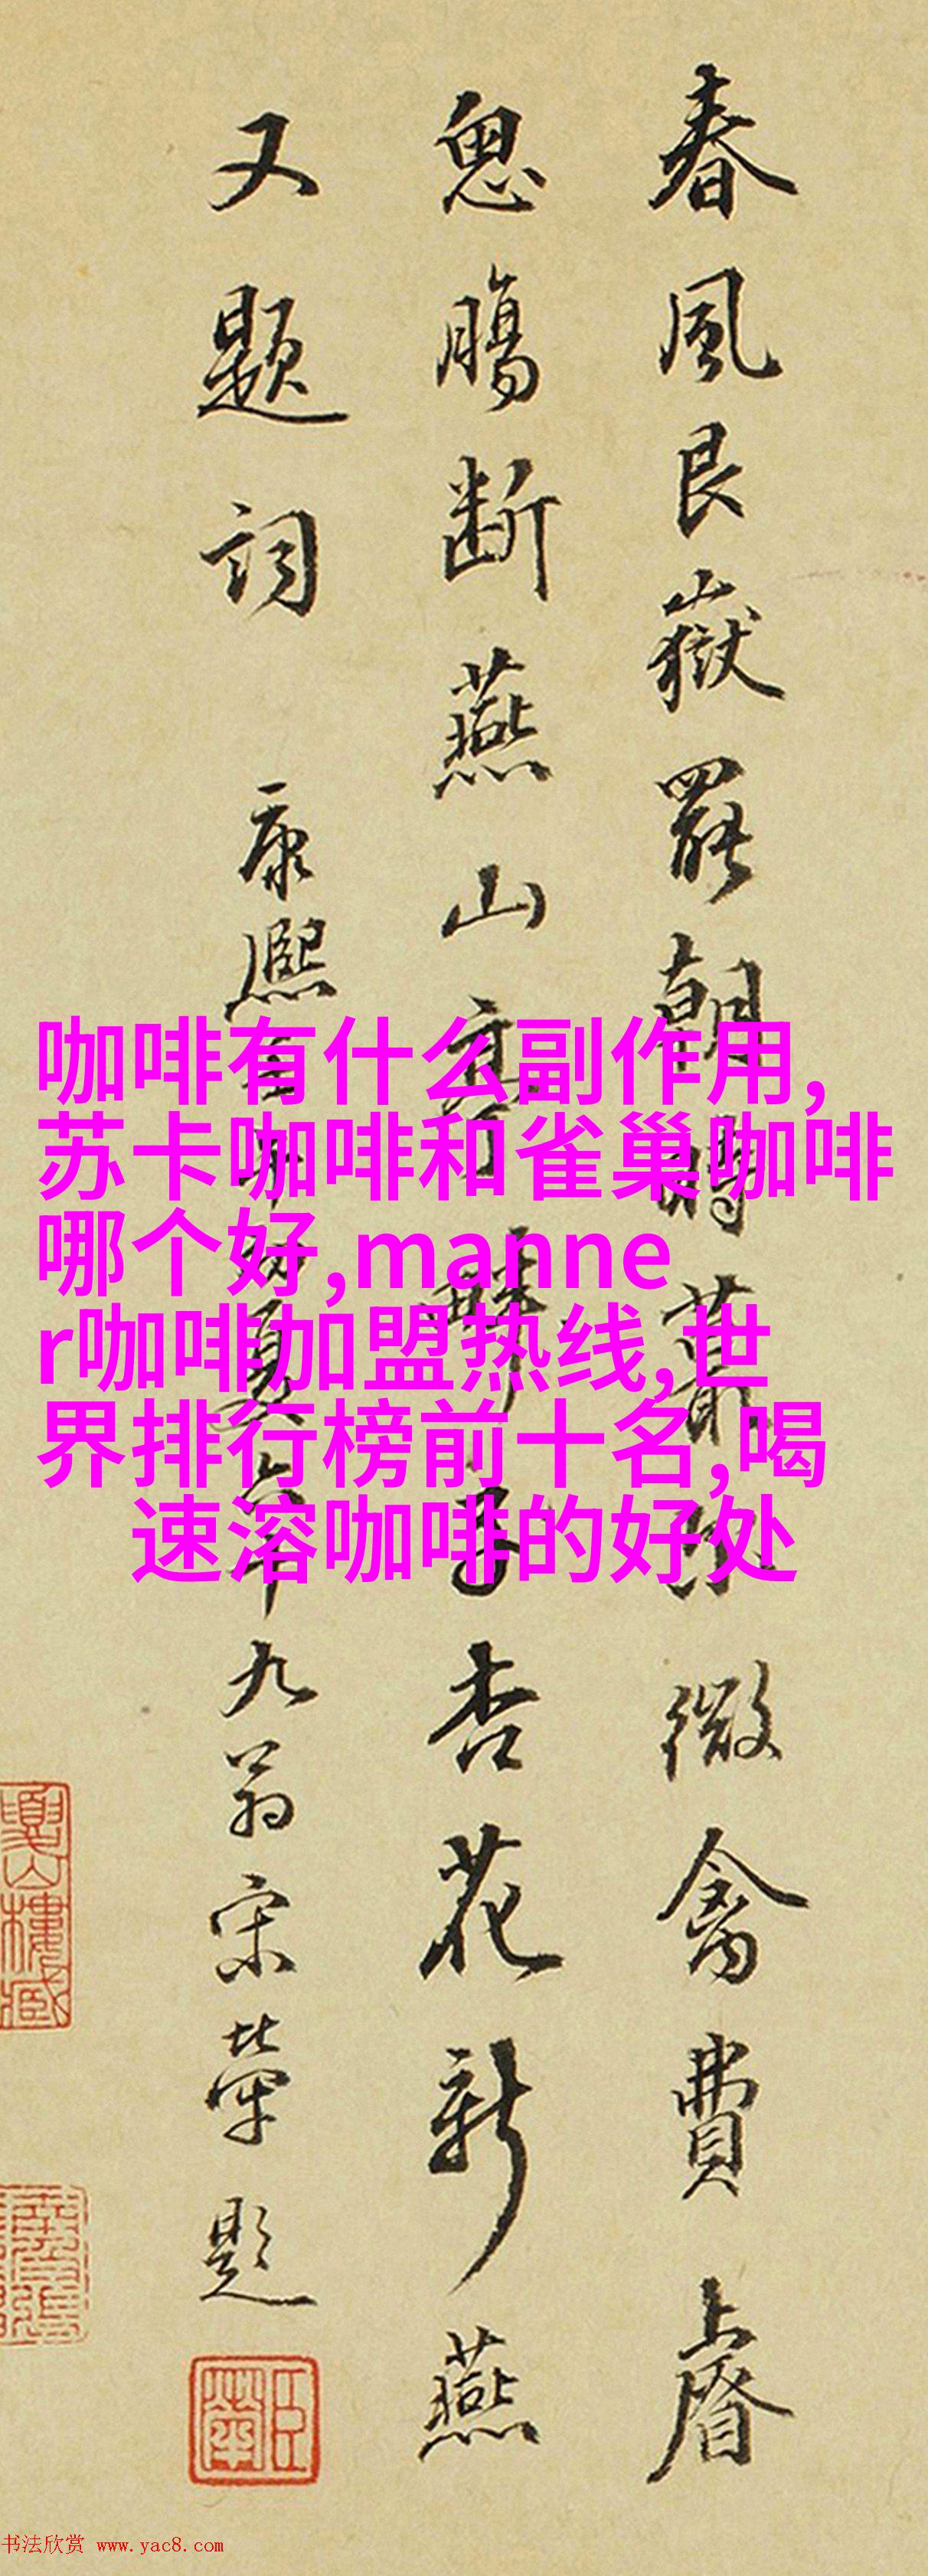 春風艮嶽罷朝時蕭 微禽費上脊
忽腸断燕山亭 子杏花新燕
又題詞
康熙 九翁宋犖題
咖啡有什么副作用,
苏卡咖啡和雀巢咖啡
哪个好,manne
r咖啡加盟热线,世
界排行榜前十名,喝
速溶咖啡的好处
书法欣赏 www.yac8.com